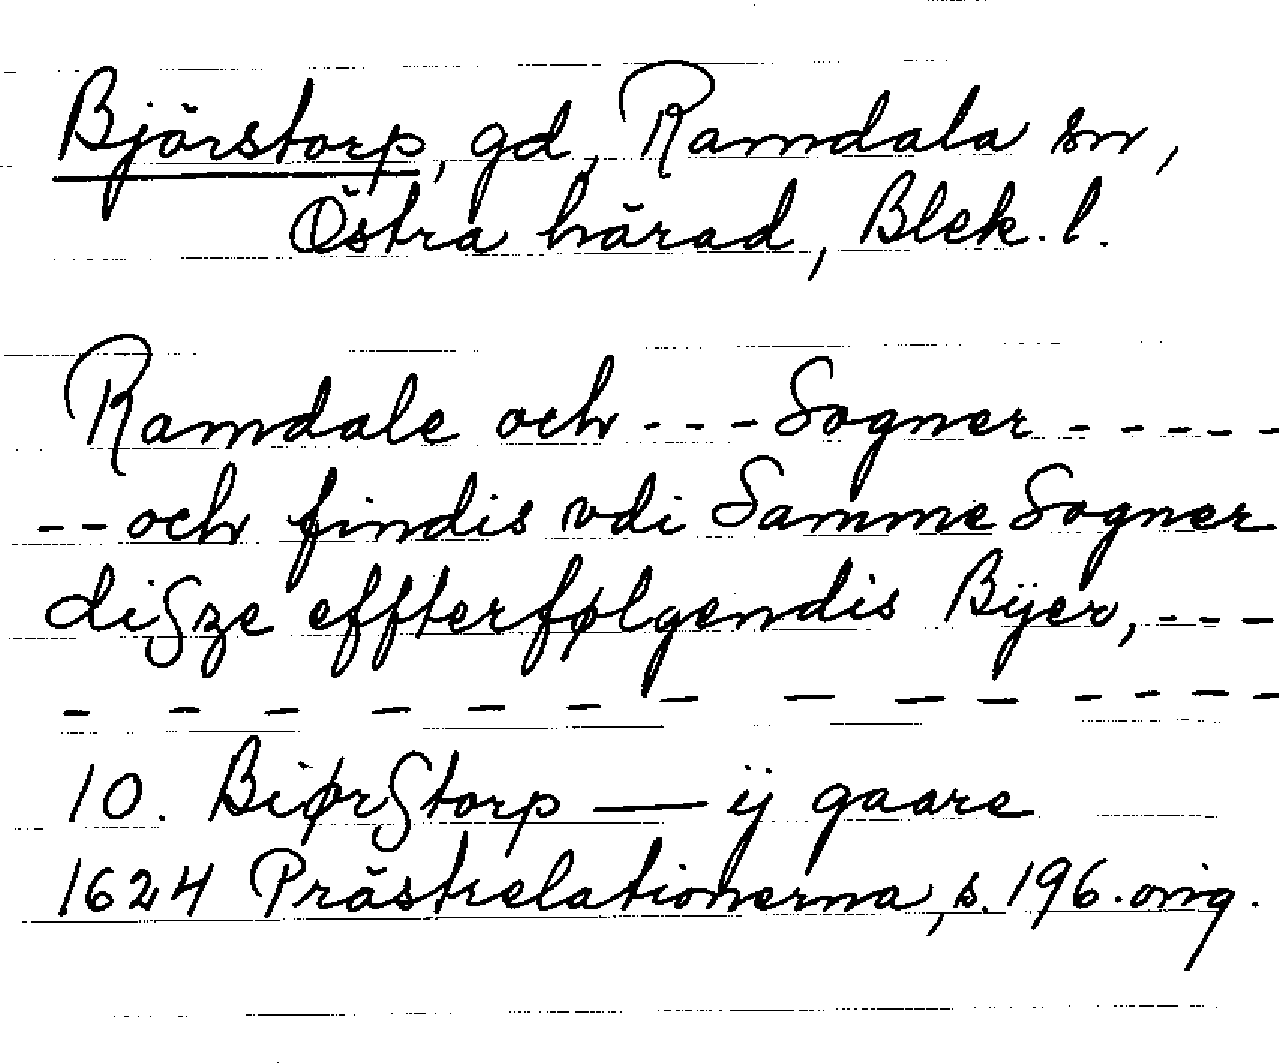 Bjärstorp, gd, Ramdala sn,
Östra härad, Blek. l.
Ramdale och --- Sogner -----
-- och findis vdi Samme Sogner
dißze effterfølgendis Bÿer, ---
- - - - - - - - - - - - -
10. Biørßtorp — ij gaare
1624 Prästrelationerna, s. 196. orig.